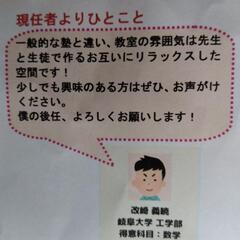 現任者よりひとこと
一般的な塾と違い、教室の雰囲気は先生
と生徒で作るお互いにリラックスした
空間です！
少しでも興味のある方はぜひ、お声がけ
ください。
僕の後任、よろしくお願いします！
改崎 義続
岐阜大学 工学部
得意科目：数学